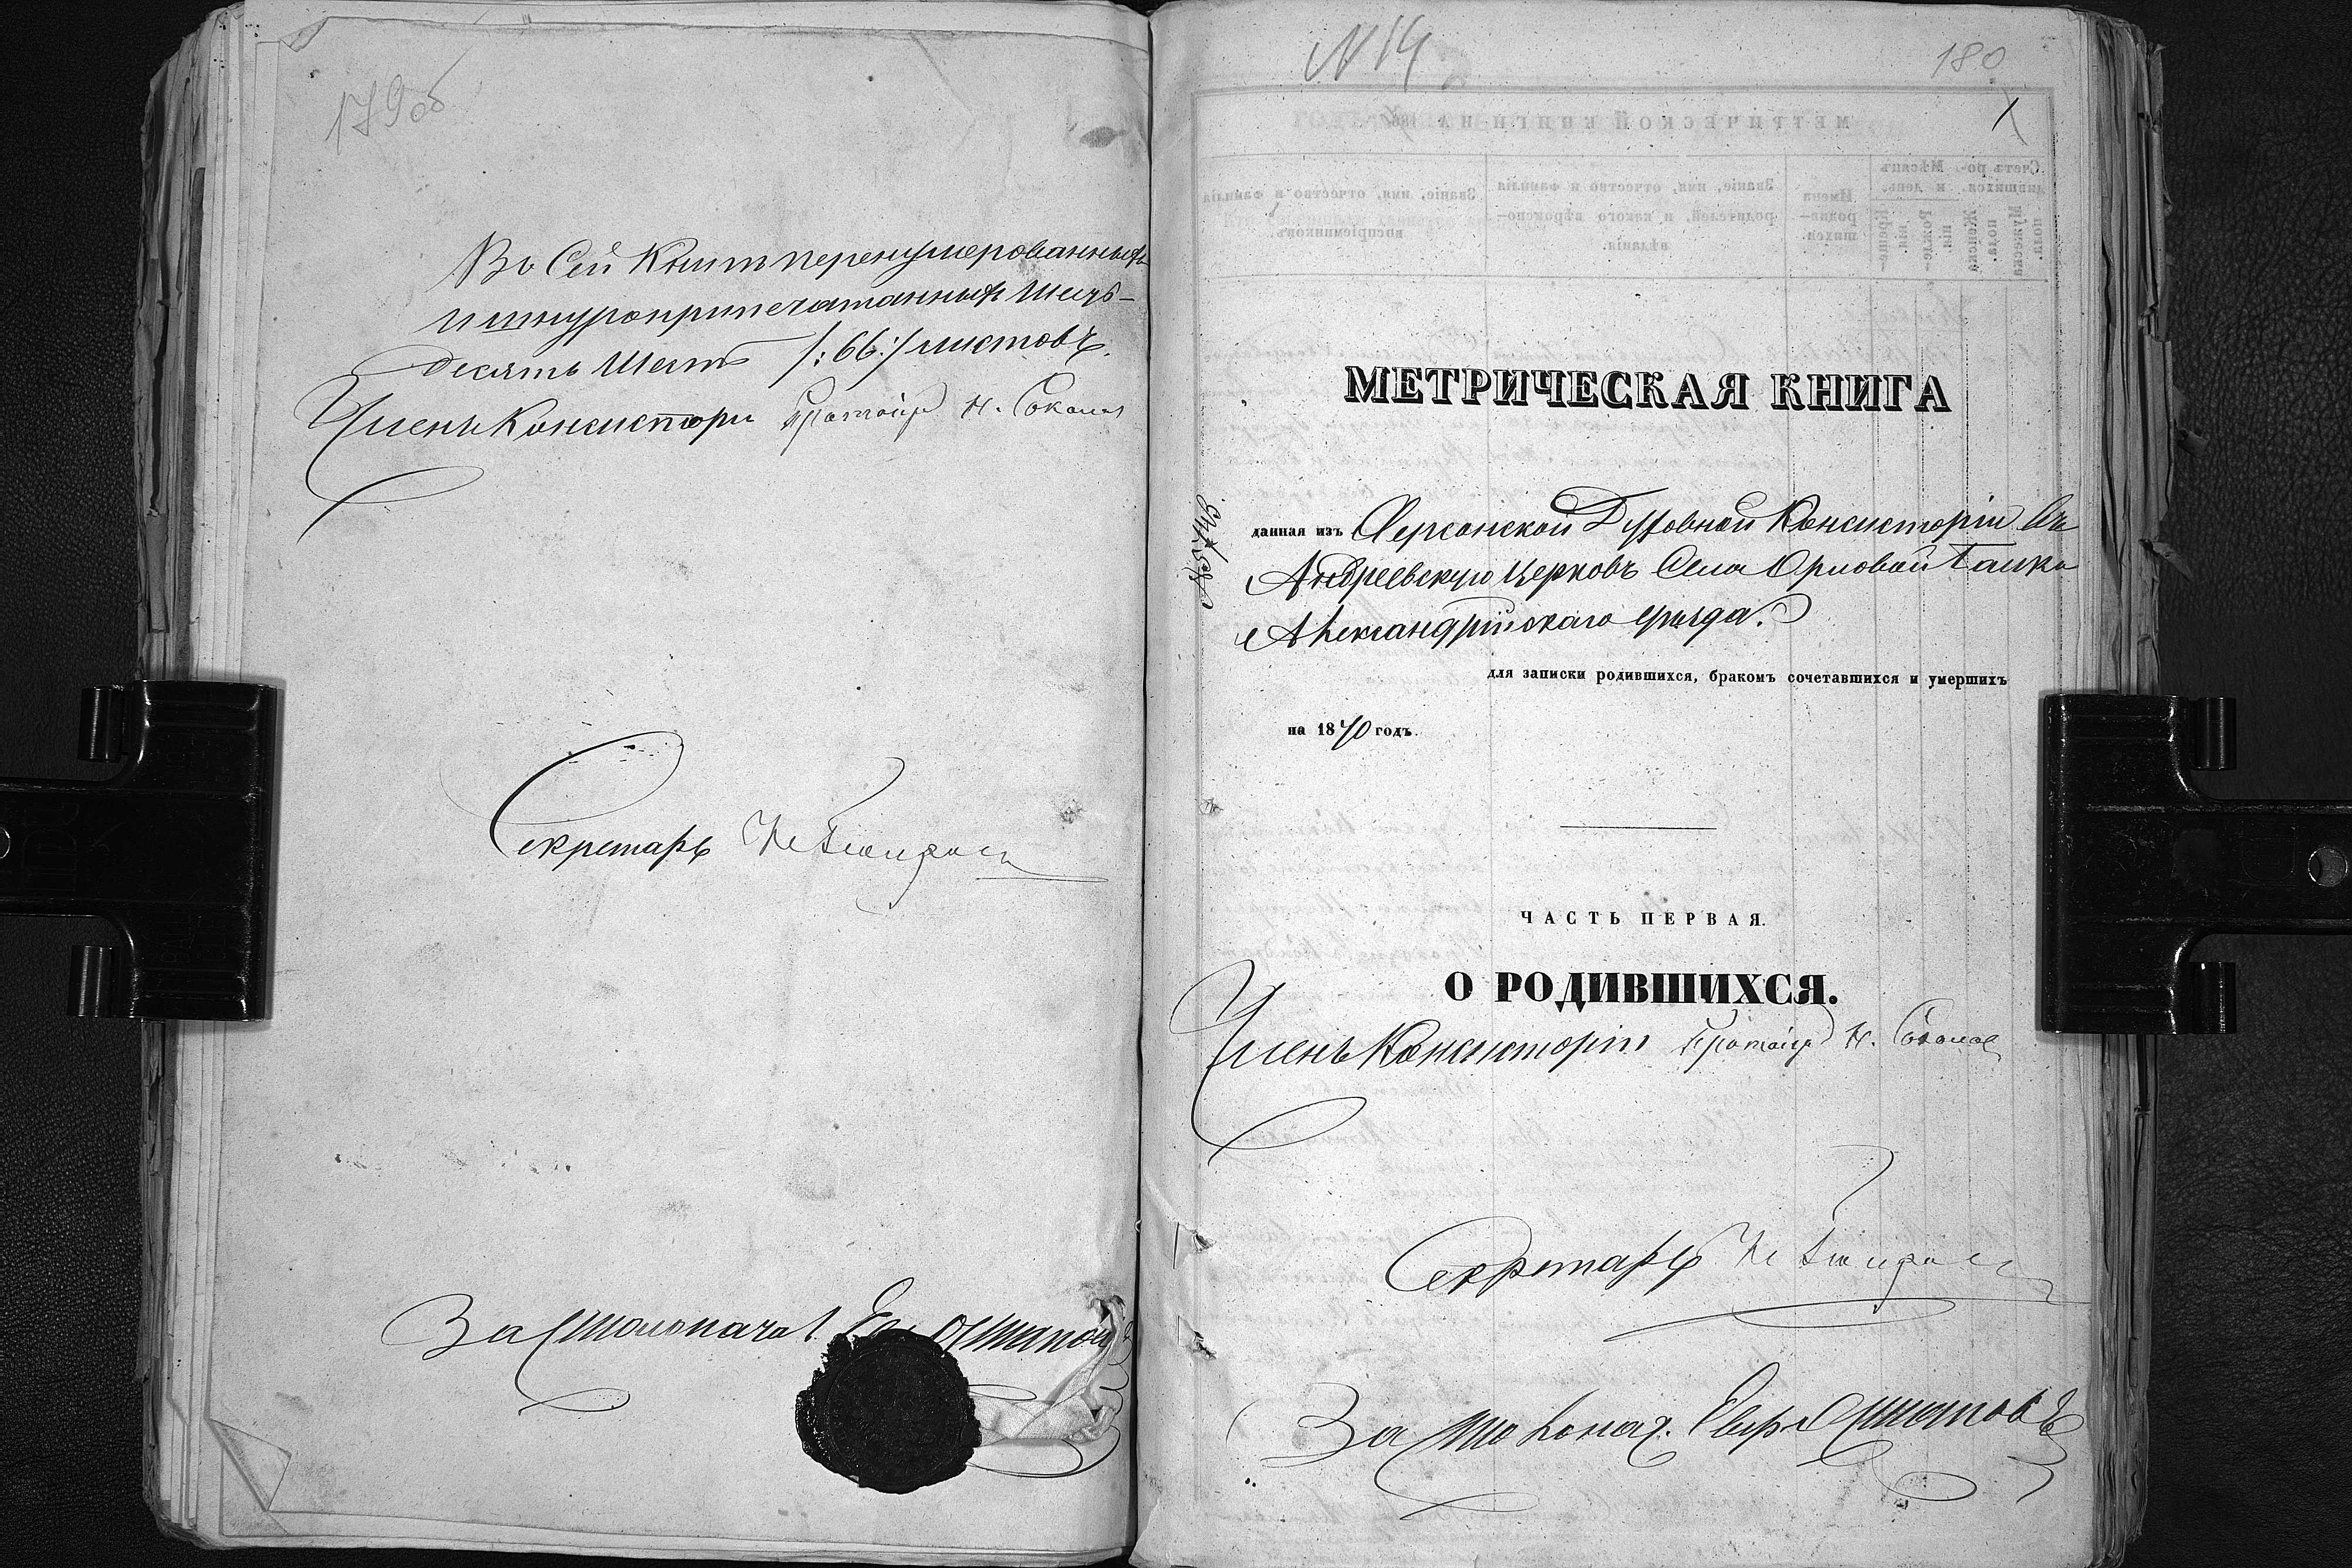 179 об
Въ сей книгѣ перенумерованныхъ
и шнуроприпечатанныхъ шесть-
десять шесть /:66:/ листовъ.
Членъ Консисторіи Протоіер Н. Соколов
Секретарь
За Столоначал. Остапов
N 14
180
1
МЕТРИЧЕСКАЯ КНИГА
данная изъ Херсонской Духовной Консисторіи въ
Андреевскую церковь Села Орловой Балки
Александрійскаго уѣзда.
для записки родившихся, бракомъ сочетавшихся и умершихъ
на 1870 годъ.
ЧАСТЬ ПЕРВАЯ.
О РОДИВШИХСЯ.
Членъ Консисторіи Протоіер Н. Соколов
Секретарь
За Столонач. Остаповъ